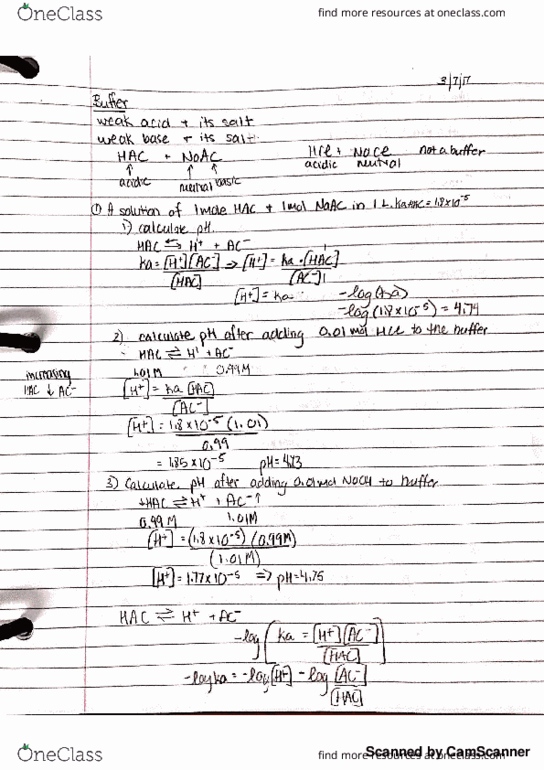 OneClass
find more resources at oneclass.com
3/7/17
Buffer
weak acid + its salt
weak base + its salt
HAC + NaAC HCl + NaCl not a buffer
acidic neutral
acidic neutral basic
① A solution of 1 mole HAC + 1 mol NaAC in 1 L. Ka HAC = 1.8x10⁻⁵
1) calculate pH.
HAC ⇌ H⁺ + AC⁻
Ka = [H⁺][AC⁻] / [HAC] ⇒ [H⁺] = Ka • [HAC] / [AC⁻]
[H⁺] = Ka -log(Ka)
-log(1.8x10⁻⁵) = 4.74
2) calculate pH after adding 0.01 mol HCl to the buffer
HAC ⇌ H⁺ + AC⁻
1.01M 0.99M
increasing
HAC ↓ AC⁻
[H⁺] = Ka [HAC] / [AC⁻]
[H⁺] = 1.8x10⁻⁵ (1.01) / 0.99
= 1.85x10⁻⁵ pH = 4.73
3) Calculate pH after adding 0.01 mol NaOH to buffer
↓HAC ⇌ H⁺ + AC⁻↑
0.99M 1.01M
[H⁺] = (1.8x10⁻⁵)(0.99M) / (1.01M)
[H⁺] = 1.77x10⁻⁵ ⇒ pH = 4.75
HAC ⇌ H⁺ + AC⁻
-log ( Ka = [H⁺][AC⁻] / [HAC] )
-log Ka = -log[H⁺] - log [AC⁻] / [HAC]
OneClass
find more resources at oneclass.com
Scanned by CamScanner